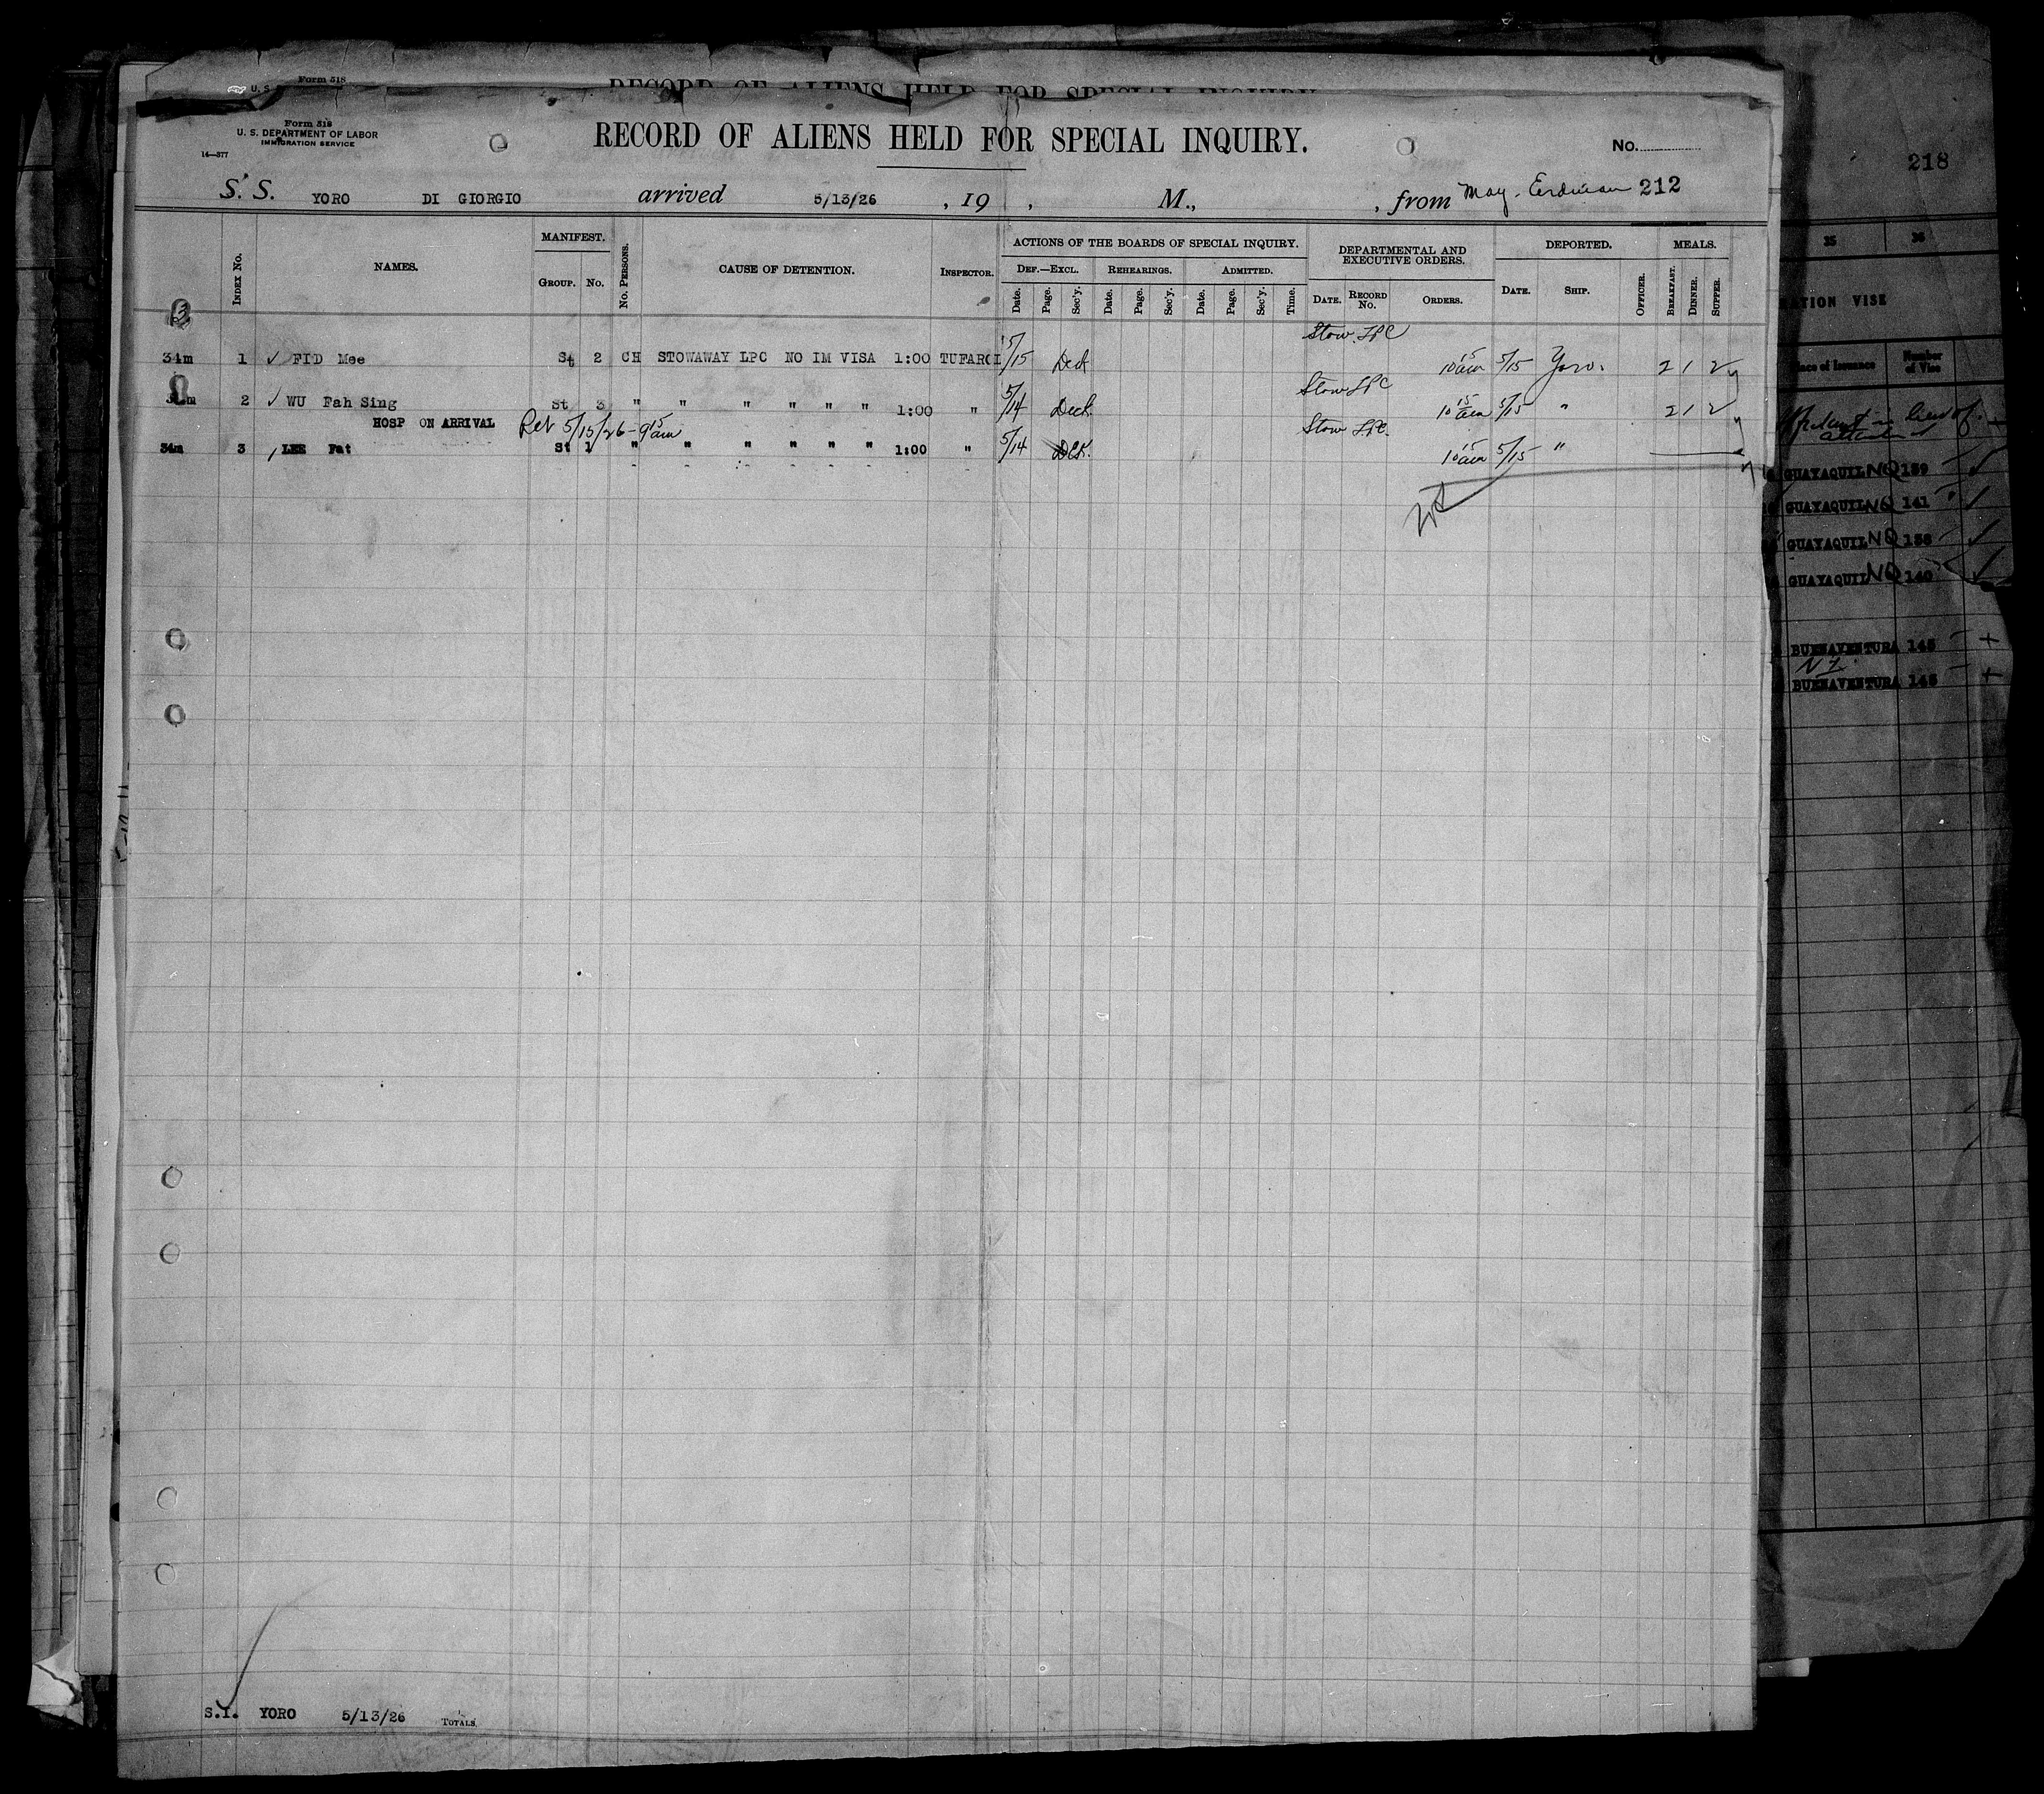 Form 518
U. S.
RECORD OF ALIENS HELD FOR SPECIAL INQUIRY
Form 518
U. S. DEPARTMENT OF LABOR
IMMIGRATION SERVICE
14—377
RECORD OF ALIENS HELD FOR SPECIAL INQUIRY.
No.
S. S. YORO DI GIORGIO arrived 5/13/26 , 19 , M., , from May. Erdman 212
INDEX No. NAMES. MANIFEST. GROUP. No. No. PERSONS. CAUSE OF DETENTION. INSPECTOR. ACTIONS OF THE BOARDS OF SPECIAL INQUIRY. DEF.—EXCL. Date. Page. Sec'y. REHEARINGS. Date. Page. Sec'y. ADMITTED. Date. Page. Sec'y. Time. DEPARTMENTAL AND EXECUTIVE ORDERS. DATE. RECORD No. ORDERS. DEPORTED. DATE. SHIP. OFFICER. MEALS. BREAKFAST. DINNER. SUPPER.
3
Stow. LPC
34m 1 ✓ FID Mee St 2 CH STOWAWAY LPC NO IM VISA 1:00 TUFAROI 5/15 10 15 am 5/15 Yoro. 2 1 2
Stow LPC
34m 2 ✓ WU Fah Sing St 3 " " " " " " 1:00 " 5/14 10 15 am 5/15 " 2 1 2
HOSP ON ARRIVAL Ret 5/15/26 - 9 15 am
Stow LPC.
34m 3 LEE Fat St 1 " " " " " " 1:00 " 5/14 10 15 am 5/15 "
S.I. YORO 5/13/26 TOTALS.
218
35 36
ATION VISE
Place of Issuance Number of Visa
GUAYAQUIL NQ 139
GUAYAQUIL NQ 141
GUAYAQUIL NQ 138
GUAYAQUIL NQ 140
BUENAVENTURA 145
BUENAVENTURA 146